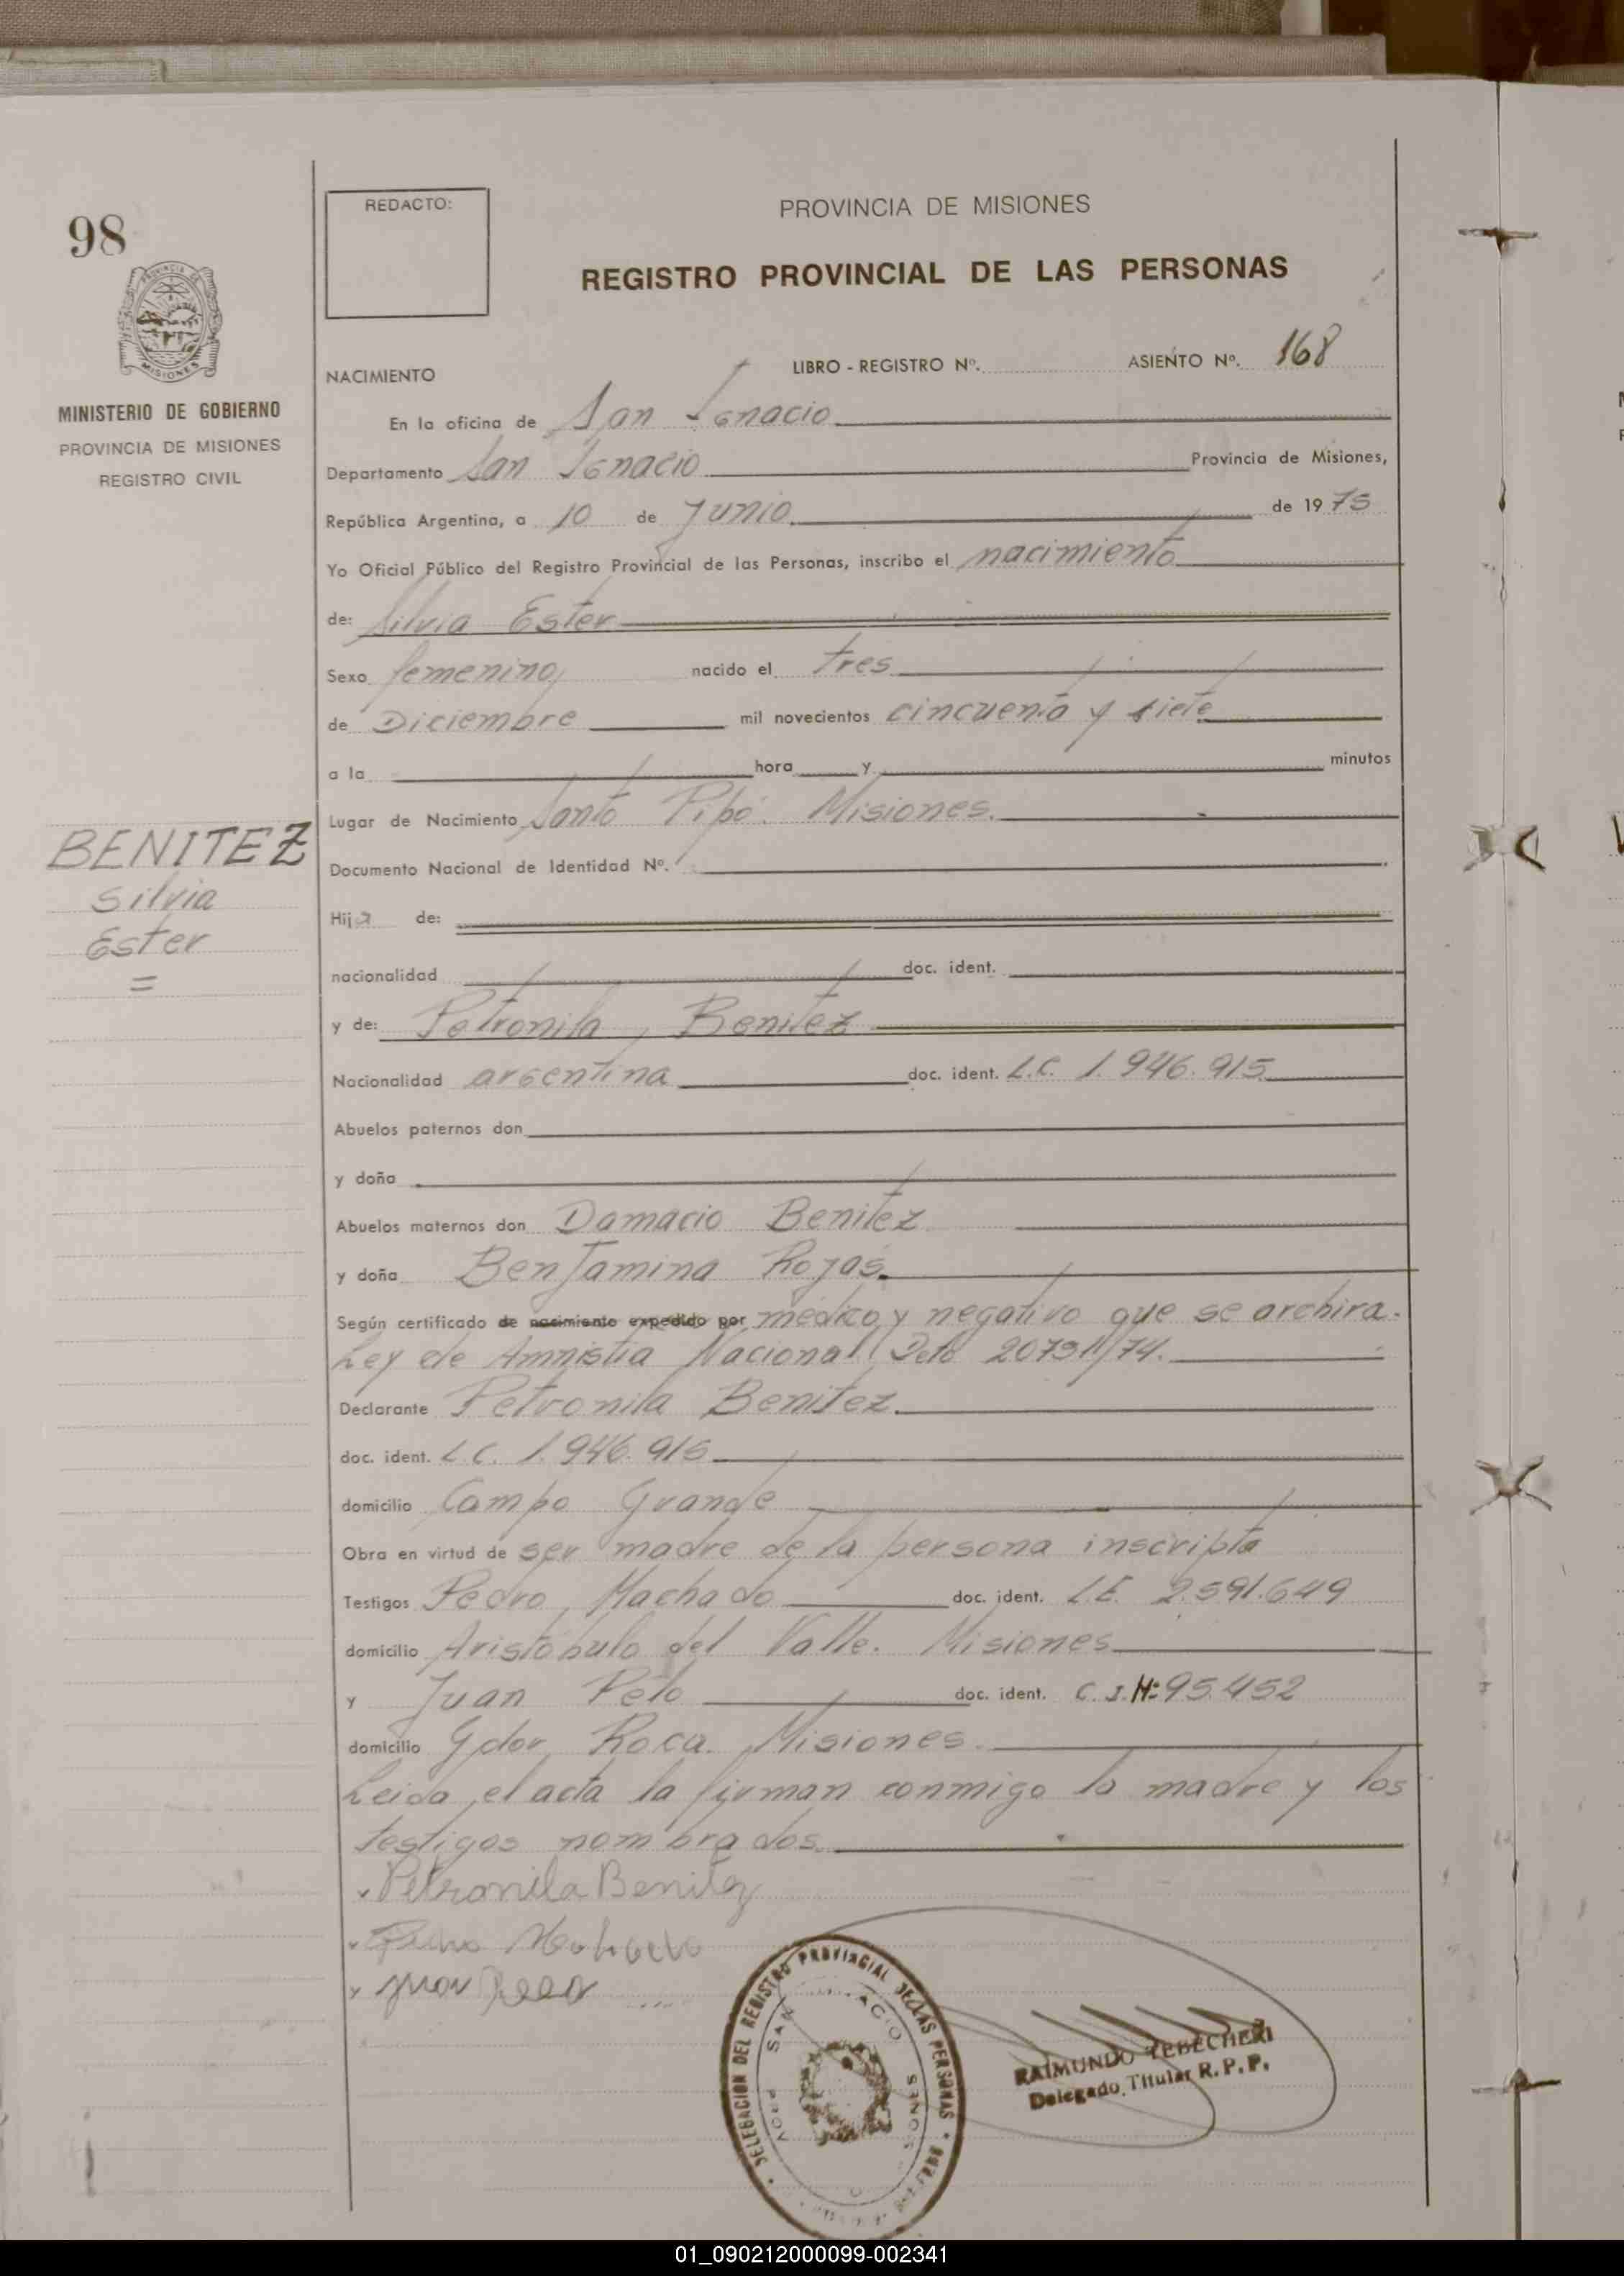 98
REDACTO:
PROVINCIA DE MISIONES
REGISTRO PROVINCIAL DE LAS PERSONAS
MINISTERIO DE GOBIERNO
PROVINCIA DE MISIONES
REGISTRO CIVIL
LIBRO - REGISTRO Nº. ASIENTO Nº. 168
NACIMIENTO
En la oficina de San Ignacio
Departamento San Ignacio Provincia de Misiones,
República Argentina, a 10 de Junio de 1975
Yo Oficial Público del Registro Provincial de las Personas, inscribo el nacimiento
de: Silvia Ester
Sexo femenino nacido el tres
de Diciembre mil novecientos cincuenta y siete
a la hora y minutos
Lugar de Nacimiento Santo Pipó. Misiones.
BENITEZ
Silvia
Ester
=
Documento Nacional de Identidad Nº.
Hija de:
nacionalidad doc. ident.
y de: Petronila Benitez
Nacionalidad argentina doc. ident. L.C. 1.946.915
Abuelos paternos don
y doña
Abuelos maternos don Damacio Benitez
y doña Benjamina Rojas.
Según certificado de nacimiento expedido por médico y negativo que se archiva.
Ley de Amnistia Nacional Dcto
Declarante Petronila Benitez.
doc. ident. L.C. 1.946.915
domicilio Campo Grande
Obra en virtud de ser madre de la persona inscripta
Testigos Pedro Machado doc. ident. L.E. 2.591.649
domicilio Aristóbulo del Valle. Misiones
y Juan doc. ident. C.I. Nº 95.452
domicilio Gdor Roca. Misiones.
Leida el acta la firman conmigo la madre y los
testigos nombrados.
Petronila Benitez
DELEGACION DEL REGISTRO PROVINCIAL DE LAS PERSONAS
SAN
RAIMUNDO TEBECHERI
Delegado Titular R.P.P.
01_090212000099-002341